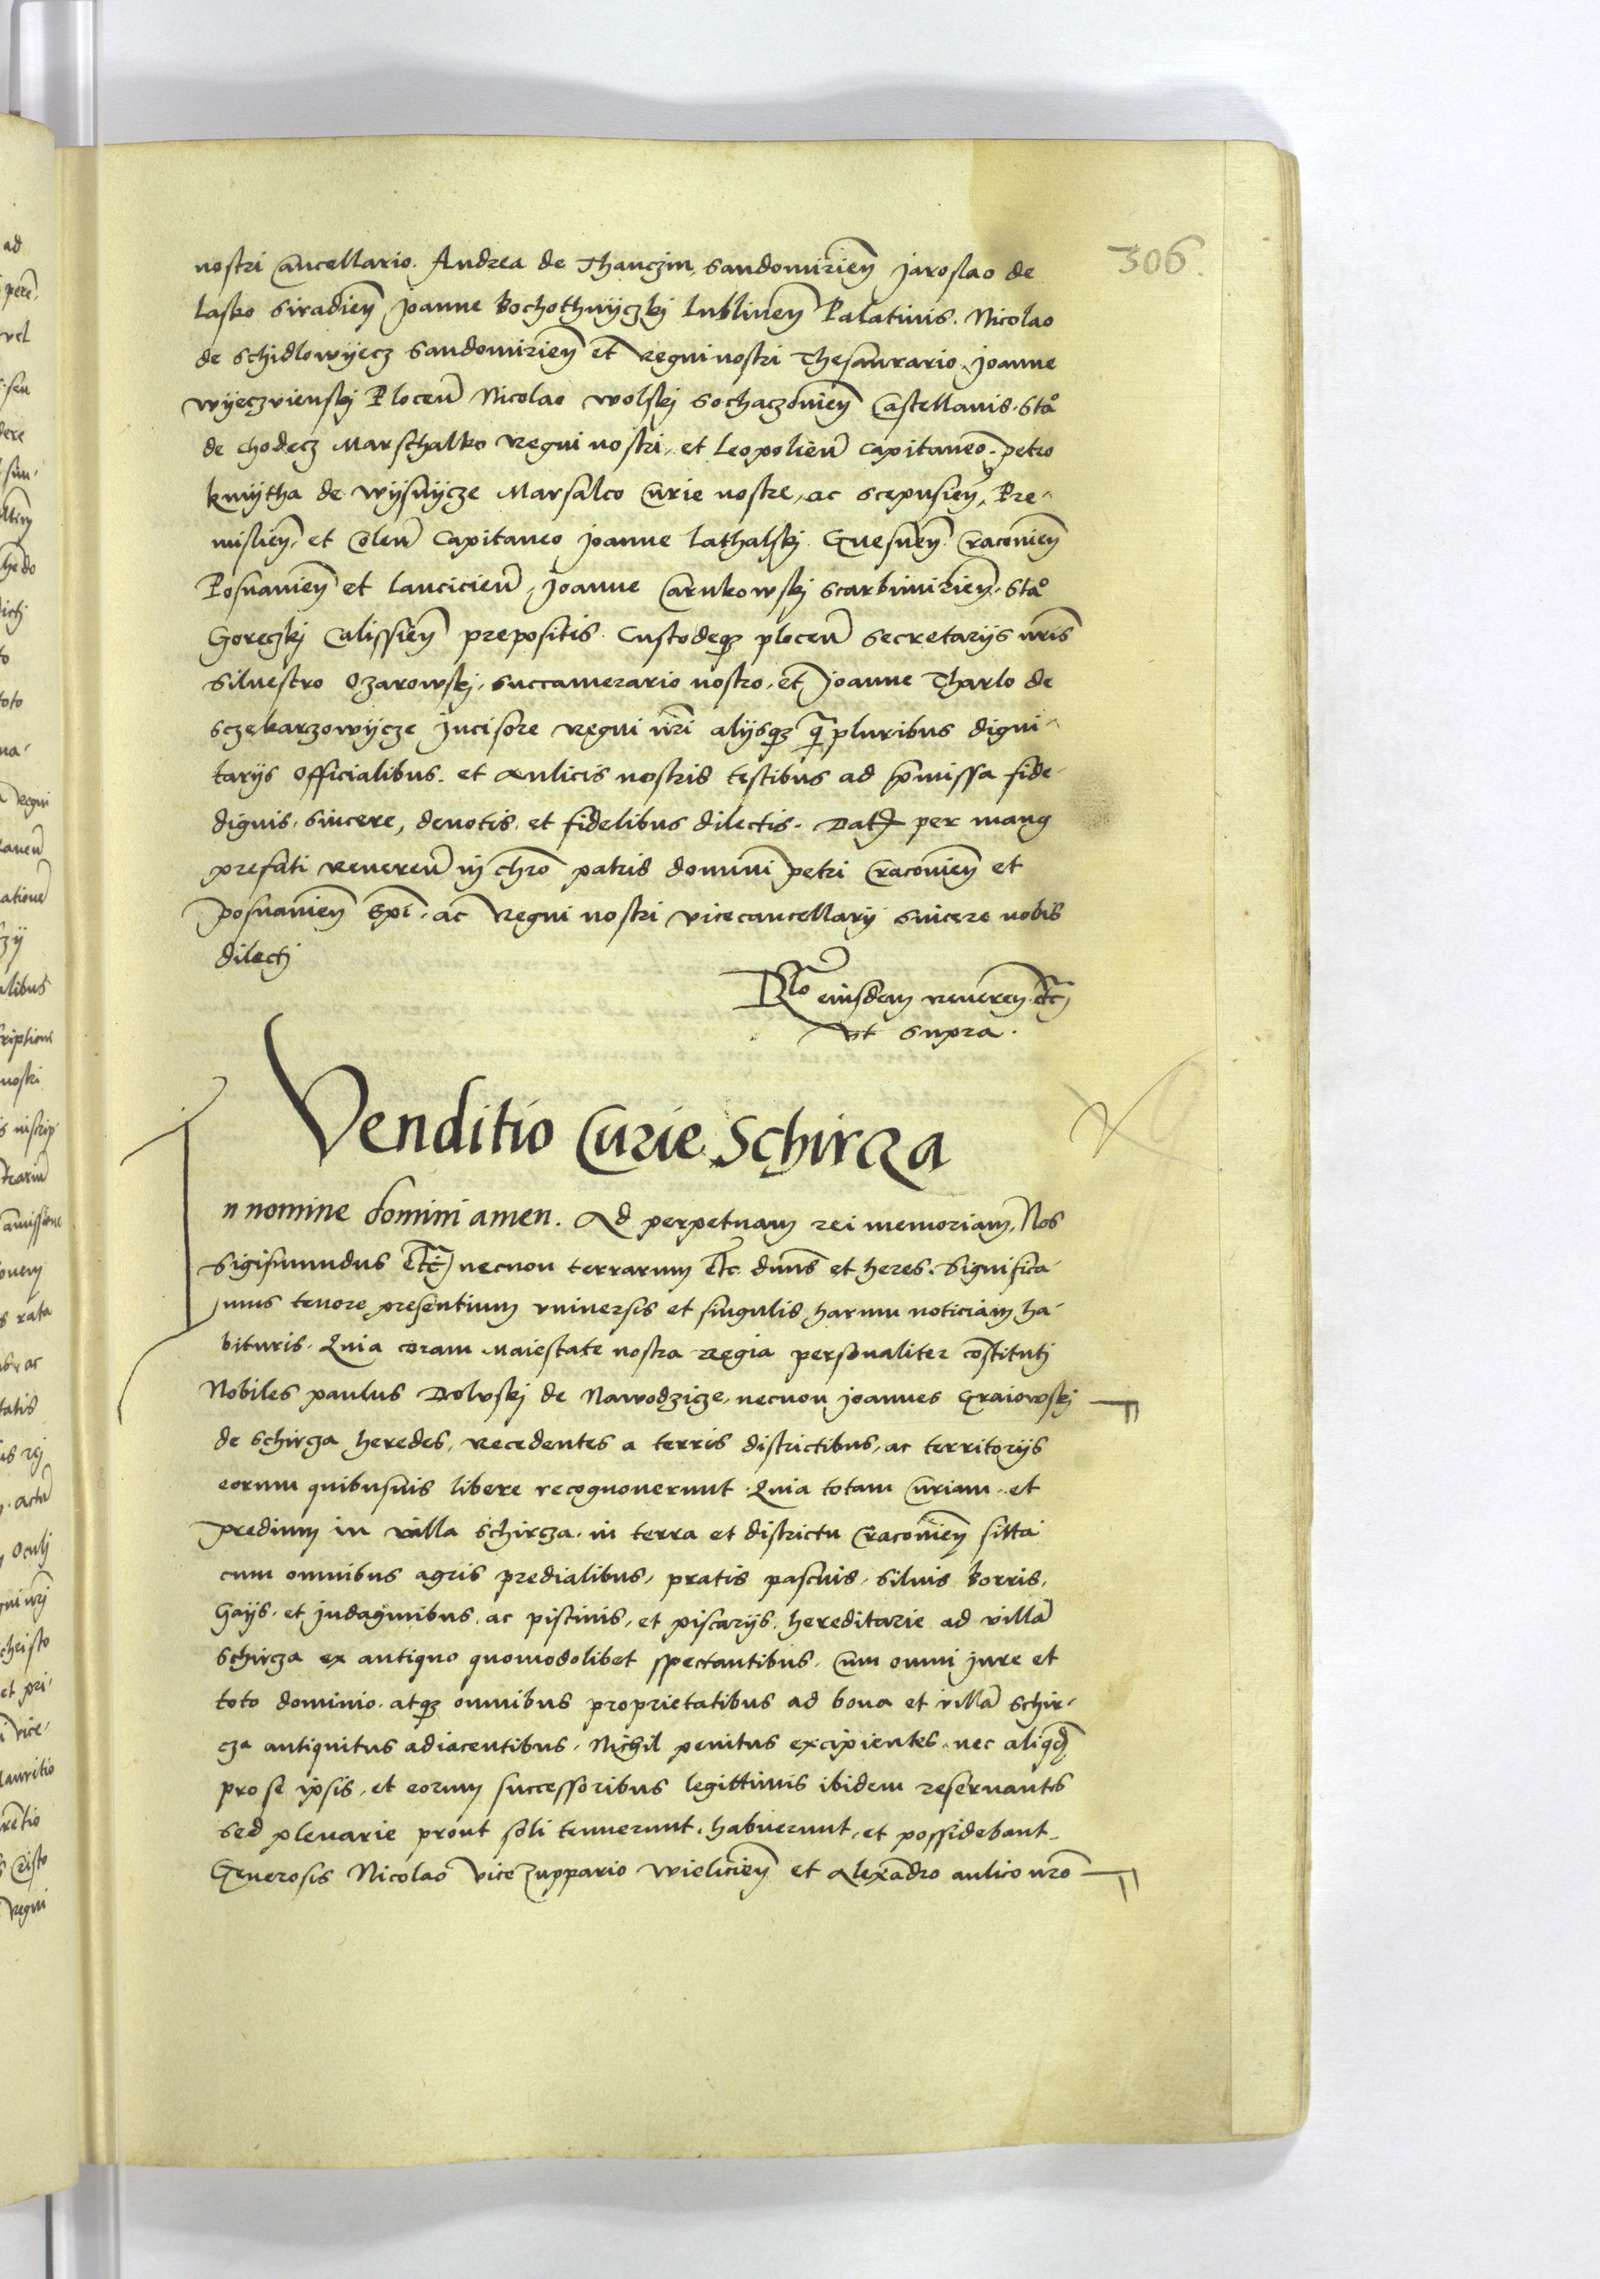 306.
nostri Cancellario. Andrea de Thanczin, Sandomirien̄ Jaroslao de
Lasko Siradien̄ Joanne Bochothnyczkj Lublinen̄ Palatinis. Nicolao
de Schidlowyecz Sandomirien̄ et Regni nostri Thesaurario, Joanne
Wyeczvienskj Plocen̄ Nicolao Wolskj Sochaczovien̄ Castellanis. Stāo
de Chodecz Marschalko Regni nostri, et Leopolien̄ Capitaneo. Petro
Kmytha de Wysnycze Marsalco Curie nostre, ac Scepusien̄, Pre-
mislien̄, et Colen̄ Capitaneo Joanne Lathalskj Gnesnen̄. Cracovien̄
Posnanien̄ et Lancicien̄, Joanne Carnkowskj Scarbimirien̄. Stāo
Goreczkj Calissien̄ prepositis. Custodeqz plocen̄ Secretarys nr̄is
Siluestro Ozarowskj, succamerario nostro, et Joanne Tharlo de
Sczekarzowycze Incisore Regni nr̄i alysqz q̄ pluribus digni-
tarys Officialibus. et aulicis nostris testibus ad p̄missa fide-
dignis. sincere, deuotis. et fidelibus dilectis. Dat̄ per manꝯ
prefati Reueren̄ in chr̄o patris domini Petri Cracovien̄ et
Posnanien̄ Ep̄i. ac Regni nostri vicecancellary sincere nobis
dilectj
R̄lo eiusdem reueren̄ etc̄
vt supra.
Venditio Curie Schircza
In nomine domini amen. Ad perpetuam rei memoriam, Nos
Sigismundus etc̄ necnon terrarum etc̄. dn̄us et heres. Significa-
mus tenore presentium vniuersis et singulis harum noticiam ha-
bituris. Quia coram Maiestate nostra regia personaliter cōstitutj
Nobiles paulus Dolvskj de Nawodzicze, necnon Joannes Graiowskj
de Schircza heredes, recedentes a terris districtibus, ac territorys
eorum quibusuis libere recognouerunt. Quia totam Curiam et
predium in villa Schircza. in terra et districtu Cracovien̄ sitta
cum omnibus agris predialibus, pratis pascuis, Siluis Borris,
Gays. et Indaginibus. ac piscinis, et piscarys. hereditarie ad villā
Schircza ex antiquo quomodolibet spectantibus. Cum omni Iure et
toto dominio. atqz omnibus proprietatibus ad bona et villā Schir-
cza antiquitus adiacentibus. Nichil penitus excipientes. nec aliqd̄
pro se ipsis, et eorum successoribus legittimis ibidem reseruantes
Sed plenarie prout soli tenuerunt. habuerunt, et possidebant.
Generosis Nicolao Vice zuppario Wielicien̄ et Alexādro aulico nr̄o